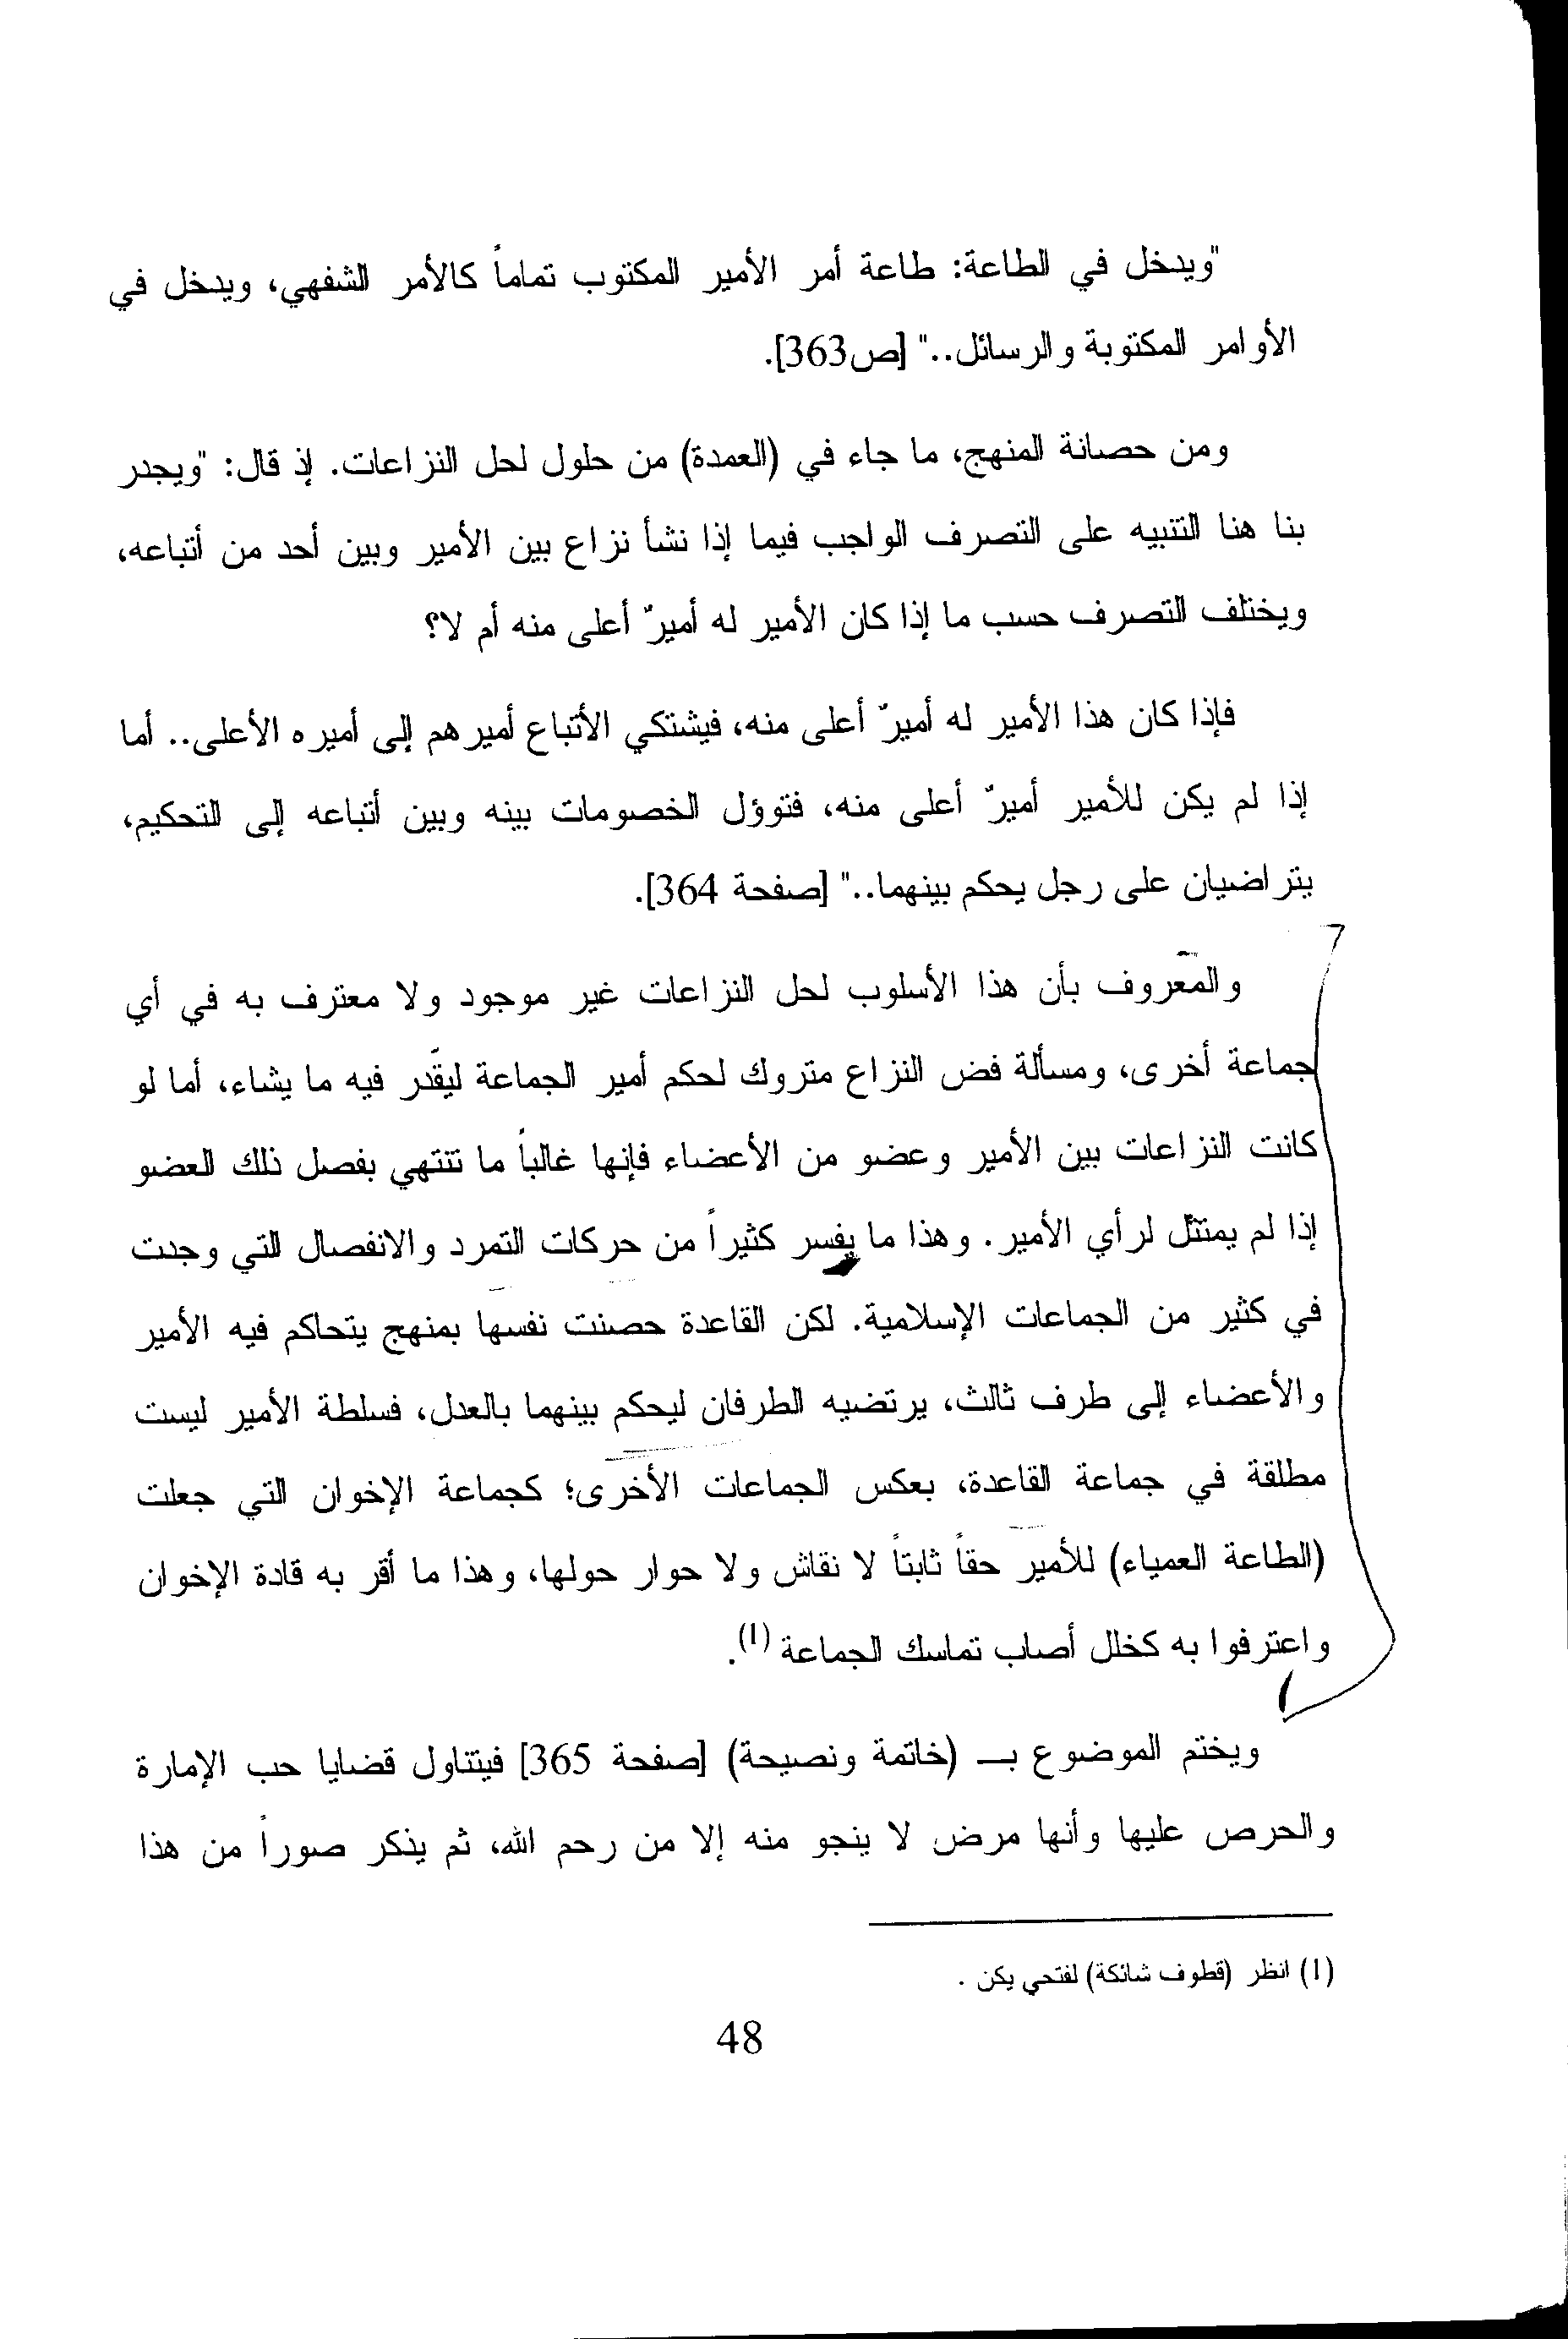 "ويدخل في الطاعة: طاعة أمر الأمير المكتوب تماماً كالأمر الشفهي، ويدخل في
الأوامر المكتوبة والرسائل.." [ص363].
ومن حصانة المنهج، ما جاء في (العمدة) من حلول لحل النزاعات. إذ قال: "ويجدر
بنا هنا التنبيه على التصرف الواجب فيما إذا نشأ نزاع بين الأمير وبين أحد من أتباعه،
ويختلف التصرف حسب ما إذا كان الأمير له أميرٌ أعلى منه أم لا؟
فإذا كان هذا الأمير له أميرٌ أعلى منه، فيشتكي الأتباع أميرهم إلى أميره الأعلى.. أما
إذا لم يكن للأمير أميرٌ أعلى منه، فتوؤل الخصومات بينه وبين أتباعه إلى التحكيم،
يتراضيان على رجل يحكم بينهما.." [صفحة 364].
والمعروف بأن هذا الأسلوب لحل النزاعات غير موجود ولا معترف به في أي
جماعة أخرى، ومسألة فض النزاع متروك لحكم أمير الجماعة ليقَدر فيه ما يشاء، أما لو
كانت النزاعات بين الأمير وعضو من الأعضاء فإنها غالباً ما تنتهي بفصل ذلك العضو
إذا لم يمتثل لرأي الأمير. وهذا ما يفسر كثيراً من حركات التمرد والانفصال التي وجدت
في كثير من الجماعات الإسلامية. لكن القاعدة حصنت نفسها بمنهج يتحاكم فيه الأمير
والأعضاء إلى طرف ثالث، يرتضيه الطرفان ليحكم بينهما بالعدل، فسلطة الأمير ليست
مطلقة في جماعة القاعدة، بعكس الجماعات الأخرى؛ كجماعة الإخوان التي جعلت
(الطاعة العمياء) للأمير حقاً ثابتاً لا نقاش ولا حوار حولها، وهذا ما أقر به قادة الإخوان
واعترفوا به كخلل أصاب تماسك الجماعة (1).
ويختم الموضوع بـ (خاتمة ونصيحة) [صفحة 365] فيتناول قضايا حب الإمارة
والحرص عليها وأنها مرض لا ينجو منه إلا من رحم الله، ثم يذكر صوراً من هذا
(1) انظر (قطوف شائكة) لفتحي يكن .
48